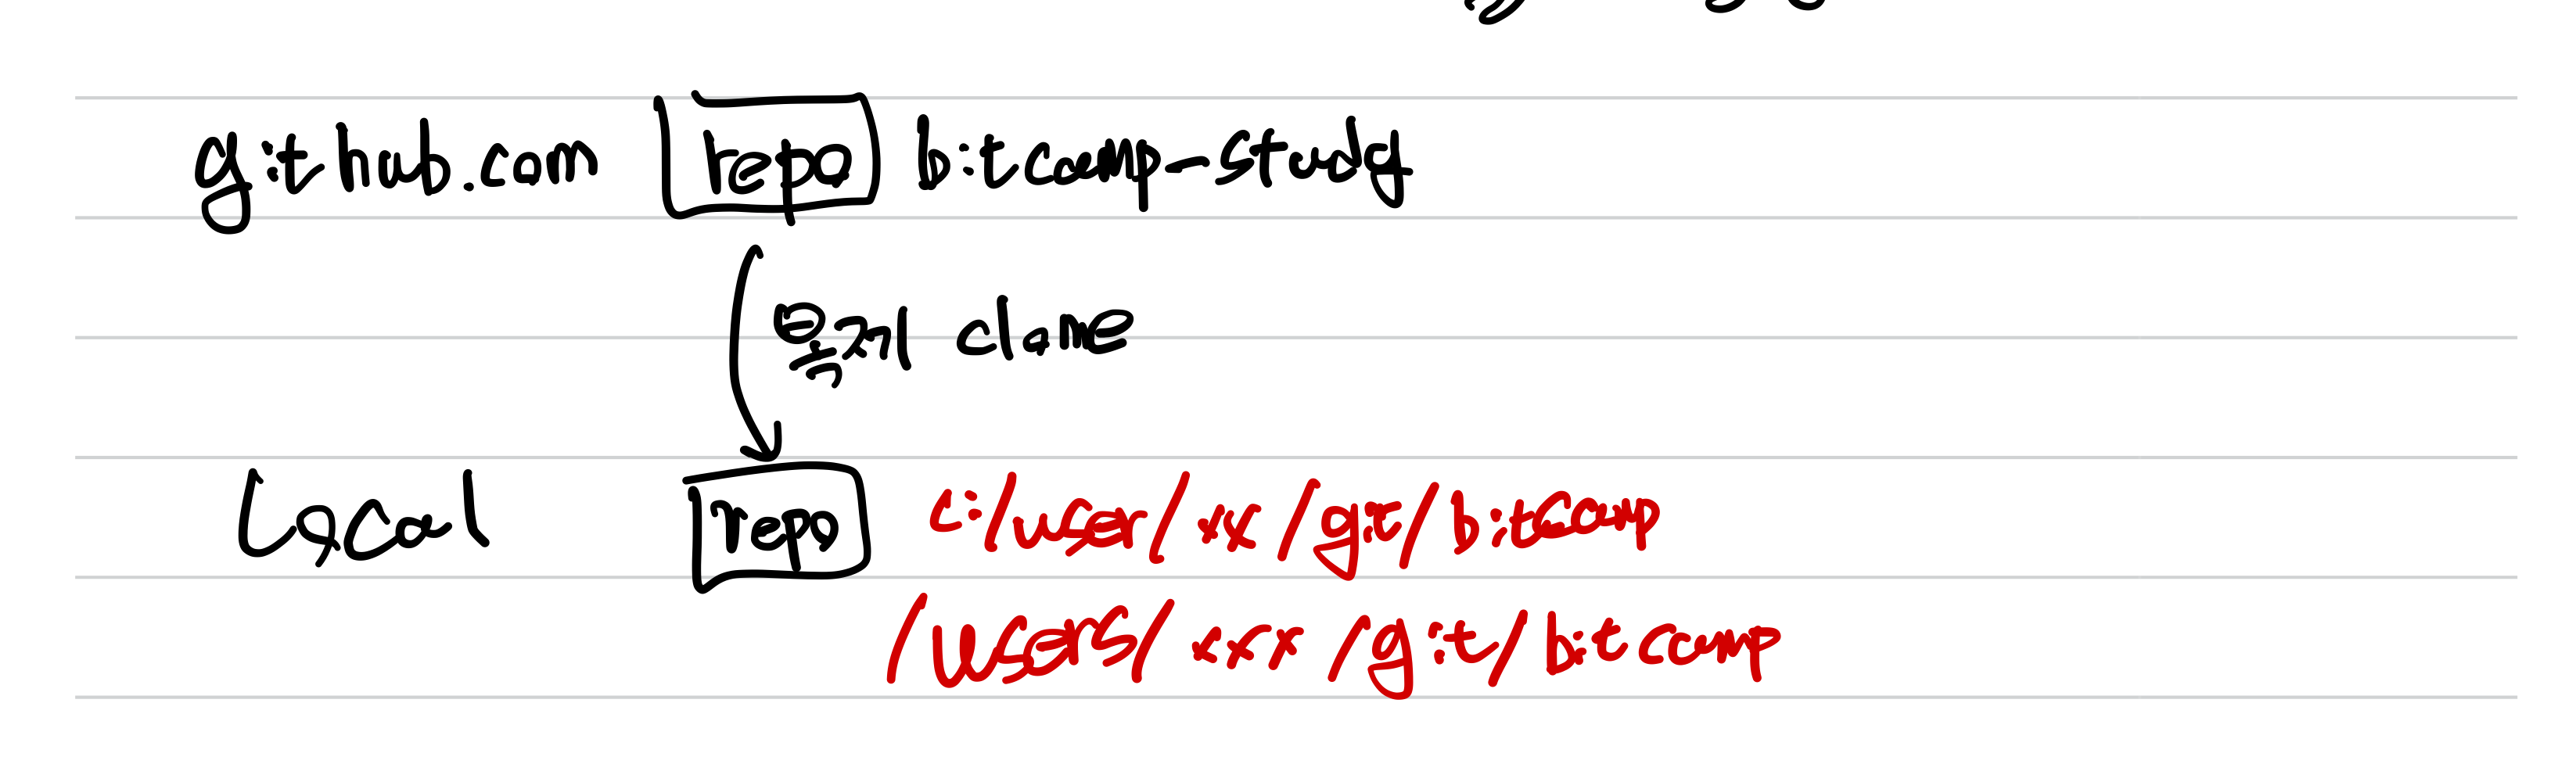 github.com repo bitcamp-study
복제 clone
local repo c:/user/xx/git/bitcamp
/users/xxx/git/bitcamp